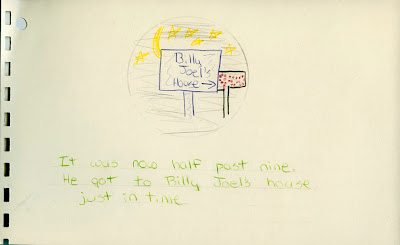 Billy
Joel's
House →
It was now half past nine.
He got to Billy Joel's house
just in time